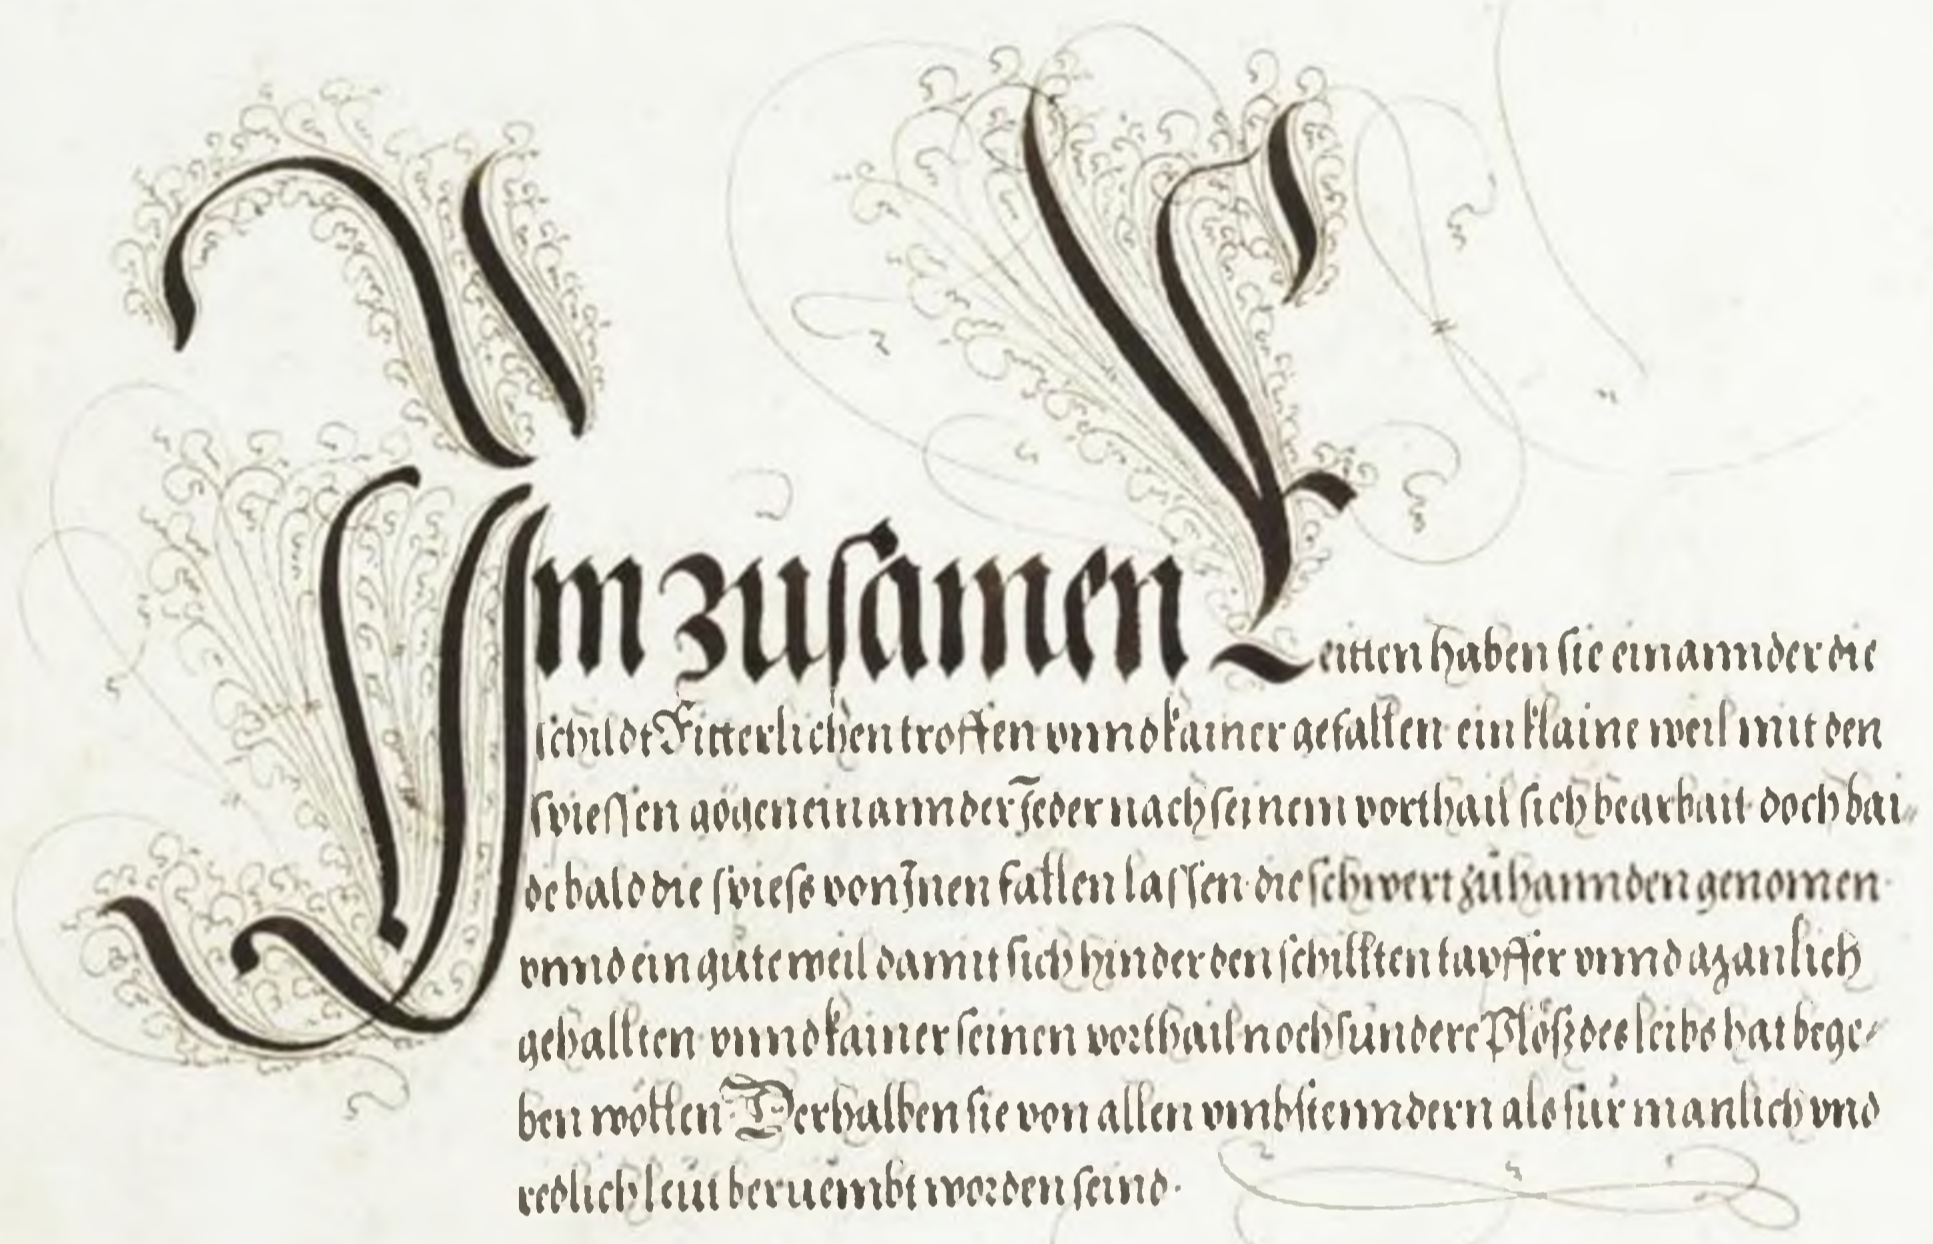 Im zusamen Reitten haben sie einannder die
schildt Ritterlichen troffen vnnd kainer gefallen ein klaine weil mit den
spiessen gögen einannder Jeder nach seinem vorthail sich bearbait doch bai⸗
de bald die spiess von Jnen fallen lassen die schwert zu hannden genomen
vnnd ein gute weil damit sich hinder den schillten tapffer vnnd aganlich
gehallten vnnd kainer seinen vorthail noch sundere Plösz des leibs hat bege⸗
ben wöllen Derhalben sie von allen vmbstenndern als für manlich vnd
redlich leut beruembt worden seind.